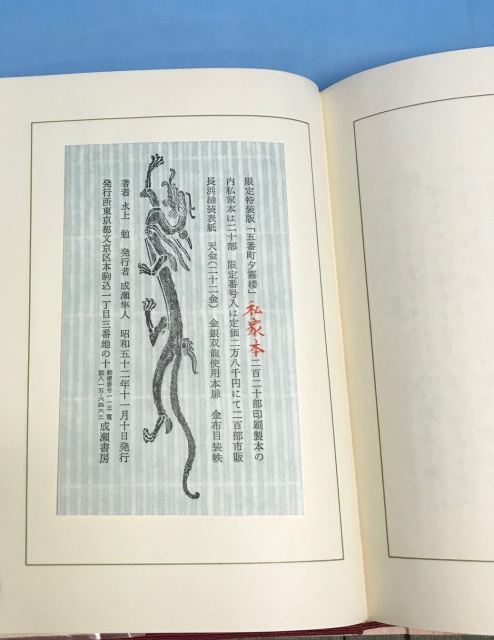 限定特装版「五番町夕霧楼」私家本二百二十部印刷製本の
内私家本は二十部　限定番号入は定価二万八千円にて二百部市販
長浜紬装表紙　天金(二十二金)　金銀双龍使用本扉　金布目装帙
著者　水上　勉　発行者　成瀬隼人　昭和五十二年十一月十日発行
発行所東京都文京区本駒込一丁目三番地の十
郵便番号一一三　電
話八一五・六四六三
成瀬書房